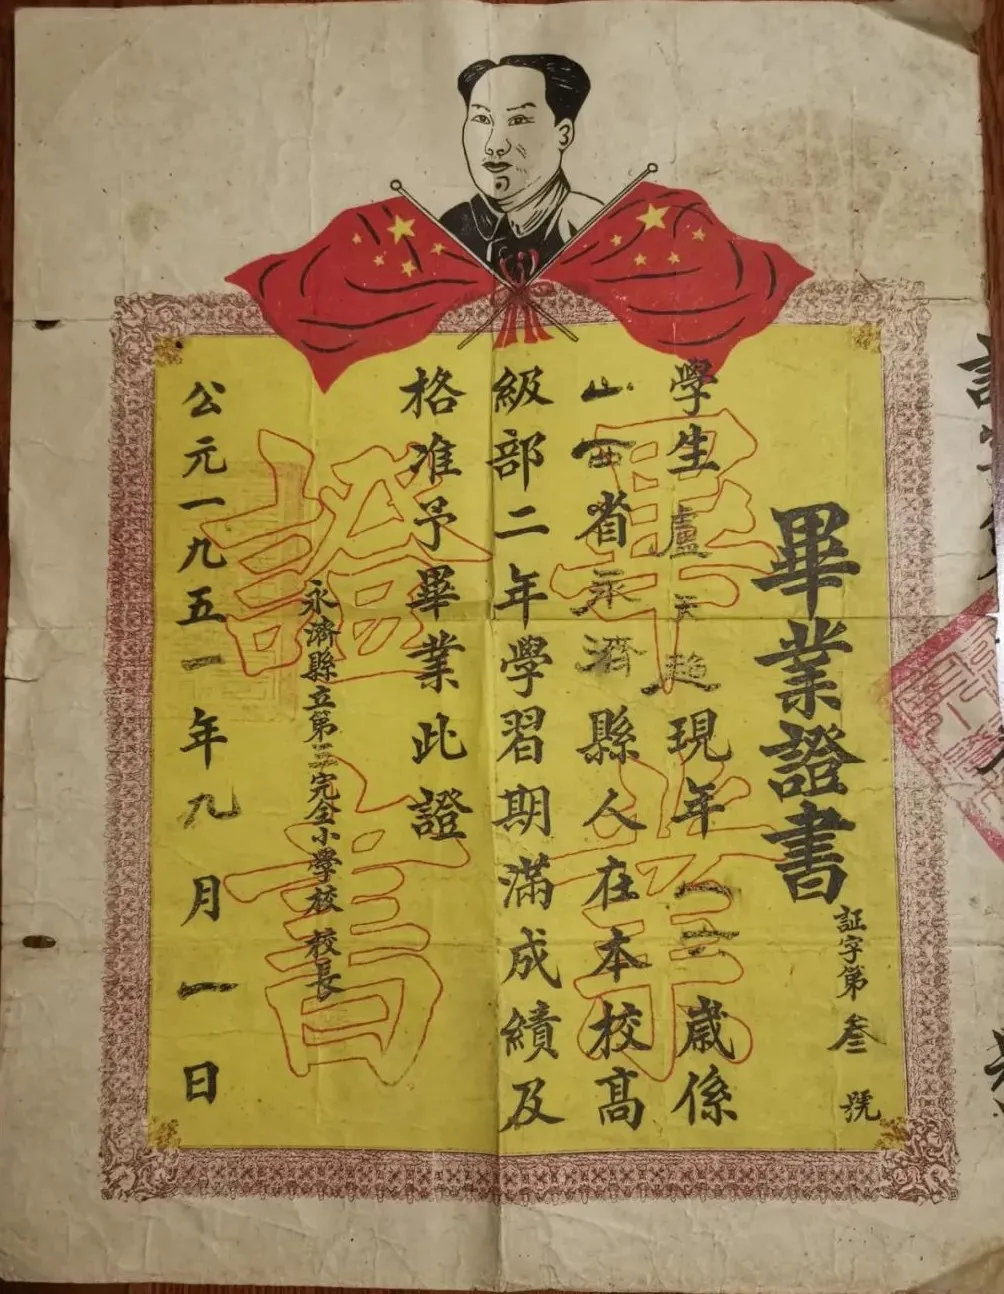 畢業證書
証字第叁號
學生盧天趂現年一三歲係
山西省永濟縣人在本校高
級部二年學習期滿成績及
格准予畢業此證
永濟縣立第三完全小學校 校長
公元一九五一年九月一日
畢業
證書